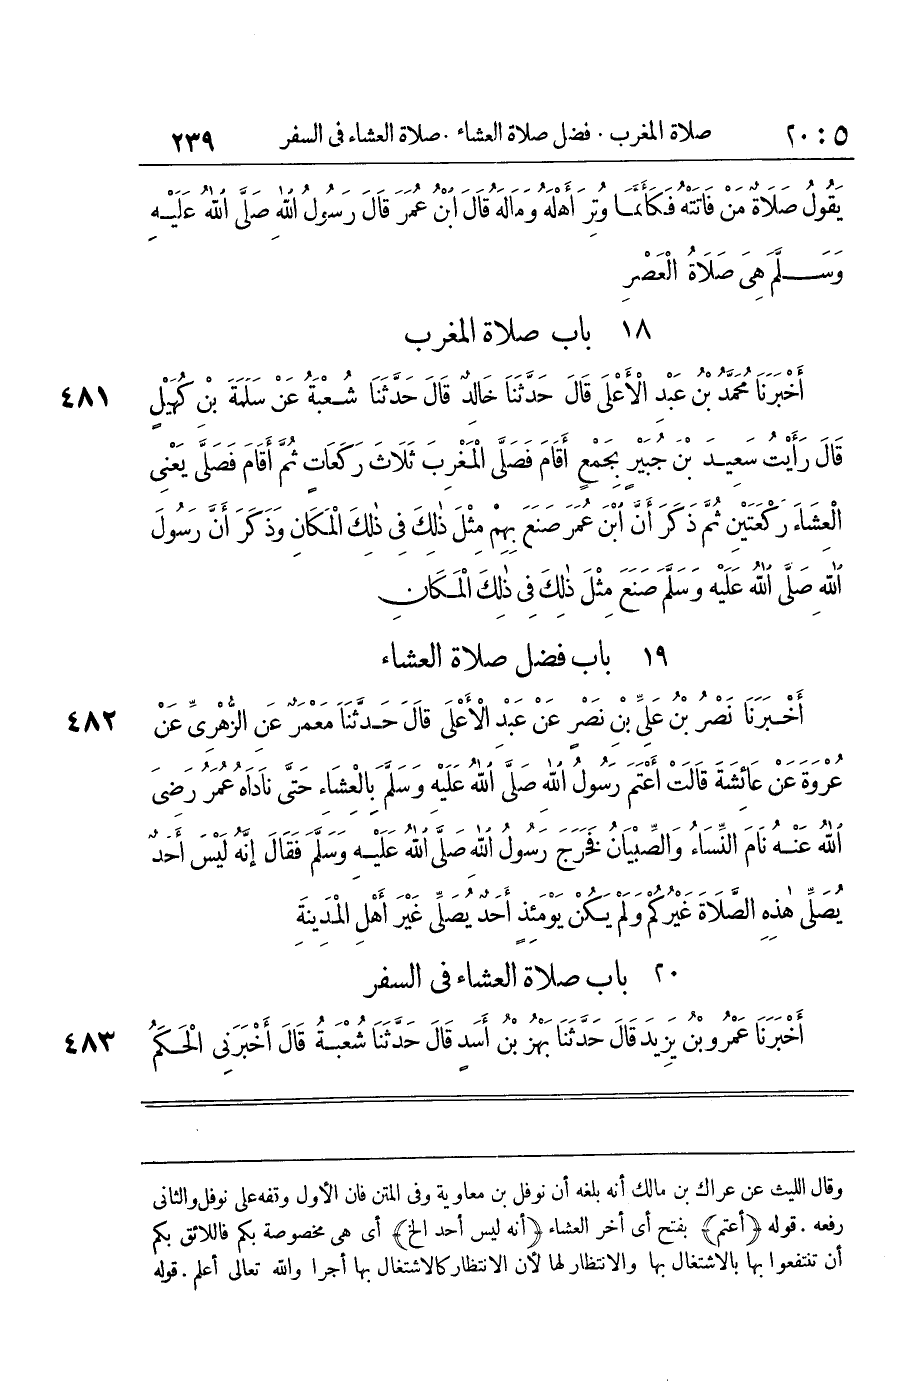 ٥ : ٢٠ صلاة المغرب . فضل صلاة العشاء . صلاة العشاء فى السفر ٢٣٩
يَقُولُ صَلَاةٌ مَنْ فَاتَتْهُ فَكَأَنَّمَا وُتِرَ أَهْلَهُ وَمَالَهُ قَالَ ابْنُ عُمَرَ قَالَ رَسُولُ اللهِ صَلَّى اللهُ عَلَيْهِ
وَسَلَّمَ هِىَ صَلَاةُ الْعَصْرِ
١٨ باب صلاة المغرب
أَخْبَرَنَا مُحَمَّدُ بْنُ عَبْدِ الْأَعْلَى قَالَ حَدَّثَنَا خَالِدٌ قَالَ حَدَّثَنَا شُعْبَةُ عَنْ سَلَمَةَ بْنِ كُهَيْلٍ ٤٨١
قَالَ رَأَيْتُ سَعِيدَ بْنَ جُبَيْرٍ بِجَمْعٍ أَقَامَ فَصَلَّى الْمَغْرِبَ ثَلَاثَ رَكَعَاتٍ ثُمَّ أَقَامَ فَصَلَّى يَعْنِى
الْعِشَاءَ رَكْعَتَيْنِ ثُمَّ ذَكَرَ أَنَّ ابْنَ عُمَرَ صَنَعَ بِهِمْ مِثْلَ ذٰلِكَ فِى ذٰلِكَ الْمَكَانِ وَذَكَرَ أَنَّ رَسُولَ
اللهِ صَلَّى اللهُ عَلَيْهِ وَسَلَّمَ صَنَعَ مِثْلَ ذٰلِكَ فِى ذٰلِكَ الْمَكَانِ
١٩ باب فضل صلاة العشاء
أَخْبَرَنَا نَصْرُ بْنُ عَلِىِّ بْنِ نَصْرٍ عَنْ عَبْدِ الْأَعْلَى قَالَ حَدَّثَنَا مَعْمَرٌ عَنِ الزُّهْرِىِّ عَنْ ٤٨٢
عُرْوَةَ عَنْ عَائِشَةَ قَالَتْ أَعْتَمَ رَسُولُ اللهِ صَلَّى اللهُ عَلَيْهِ وَسَلَّمَ بِالْعِشَاءِ حَتَّى نَادَاهُ عُمَرُ رَضِىَ
اللهُ عَنْهُ نَامَ النِّسَاءُ وَالصِّبْيَانُ فَخَرَجَ رَسُولُ اللهِ صَلَّى اللهُ عَلَيْهِ وَسَلَّمَ فَقَالَ إِنَّهُ لَيْسَ أَحَدٌ
يُصَلِّى هٰذِهِ الصَّلَاةَ غَيْرُكُمْ وَلَمْ يَكُنْ يَوْمَئِذٍ أَحَدٌ يُصَلِّى غَيْرَ أَهْلِ الْمَدِينَةِ
٢٠ باب صلاة العشاء فى السفر
أَخْبَرَنَا عَمْرُو بْنُ يَزِيدَ قَالَ حَدَّثَنَا بَهْزُ بْنُ أَسَدٍ قَالَ حَدَّثَنَا شُعْبَةُ قَالَ أَخْبَرَنِى الْحَكَمُ ٤٨٣
وقال الليث عن عراك بن مالك أنه بلغه أن نوفل بن معاوية وفى المتن فان الأول وقفه على نوفل والثانى
رفعه . قوله ﴿أعتم﴾ بفتح أى أخر العشاء ﴿أنه ليس أحد الخ﴾ أى هى مخصوصة بكم فاللائق بكم
أن تنتفعوا بها بالاشتغال بها والانتظار لها لأن الانتظار كالاشتغال بها أجرا والله تعالى أعلم . قوله